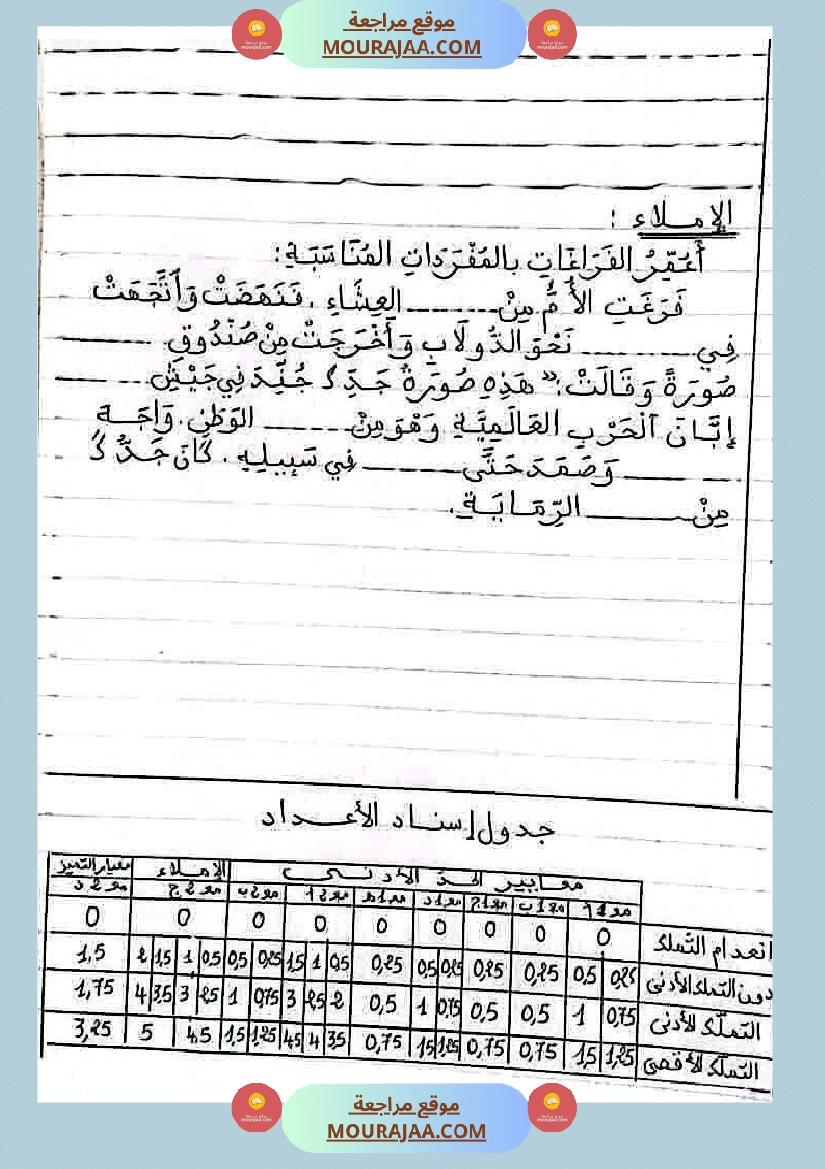 موقع مراجعة
MOURAJAA.COM
الإملاء :
أُعَمِّرُ الفَرَاغَاتِ بالمُفْرَدَاتِ المُنَاسَبَةِ :
فَرَغَتِ الأُمُّ مِنْ ........ العِشَاءِ . فَنَهَضَتْ وَٱتَّجَهَتْ
فِي ........ نَحْوَ الدُّولَابِ وَأَخْرَجَتْ مِنْ صُنْدُوقٍ ........
صُورَةً وَقَالَتْ : « هَذِهِ صُورَةُ جَدِّكَ جُنِّدَ فِي جَيْشِ ........
إِبَّانَ ٱلْحَرْبِ العَالَمِيَّةِ وَهْوَ مِنْ ........ الوَطَنِ . وَاجَهَ
........ وَصَمَدَ حَتَّى ........ فِي سَبِيلِهِ . كَانَ جَدُّكَ
مِنْ ........ الرِّمَايَةِ .
جدول إسناد الأعداد
معايير الحدّ الأدنى الإملاء معيار التميز
مع1أ مع1ب مع1ج مع1د مع1هـ مع2أ مع2ب مع2ج مع2د
انعدام التملك 0 0 0 0 0 0 0 0 0
دون التملك الأدنى 0,25 0,5 0,25 0,25 0,25 0,5 0,25 0,5 1 1,5 0,25 0,5 0,5 1 1,5 2 1,5
التملّك الأدنى 0,75 1 0,5 0,5 0,75 1 0,5 2 2,5 3 0,75 1 2,5 3 3,5 4 1,75
التملّك الأقصى 1,25 1,5 0,75 0,75 1,25 1,5 0,75 3,5 4 4,5 1,25 1,5 4,5 5 3,25
موقع مراجعة
MOURAJAA.COM